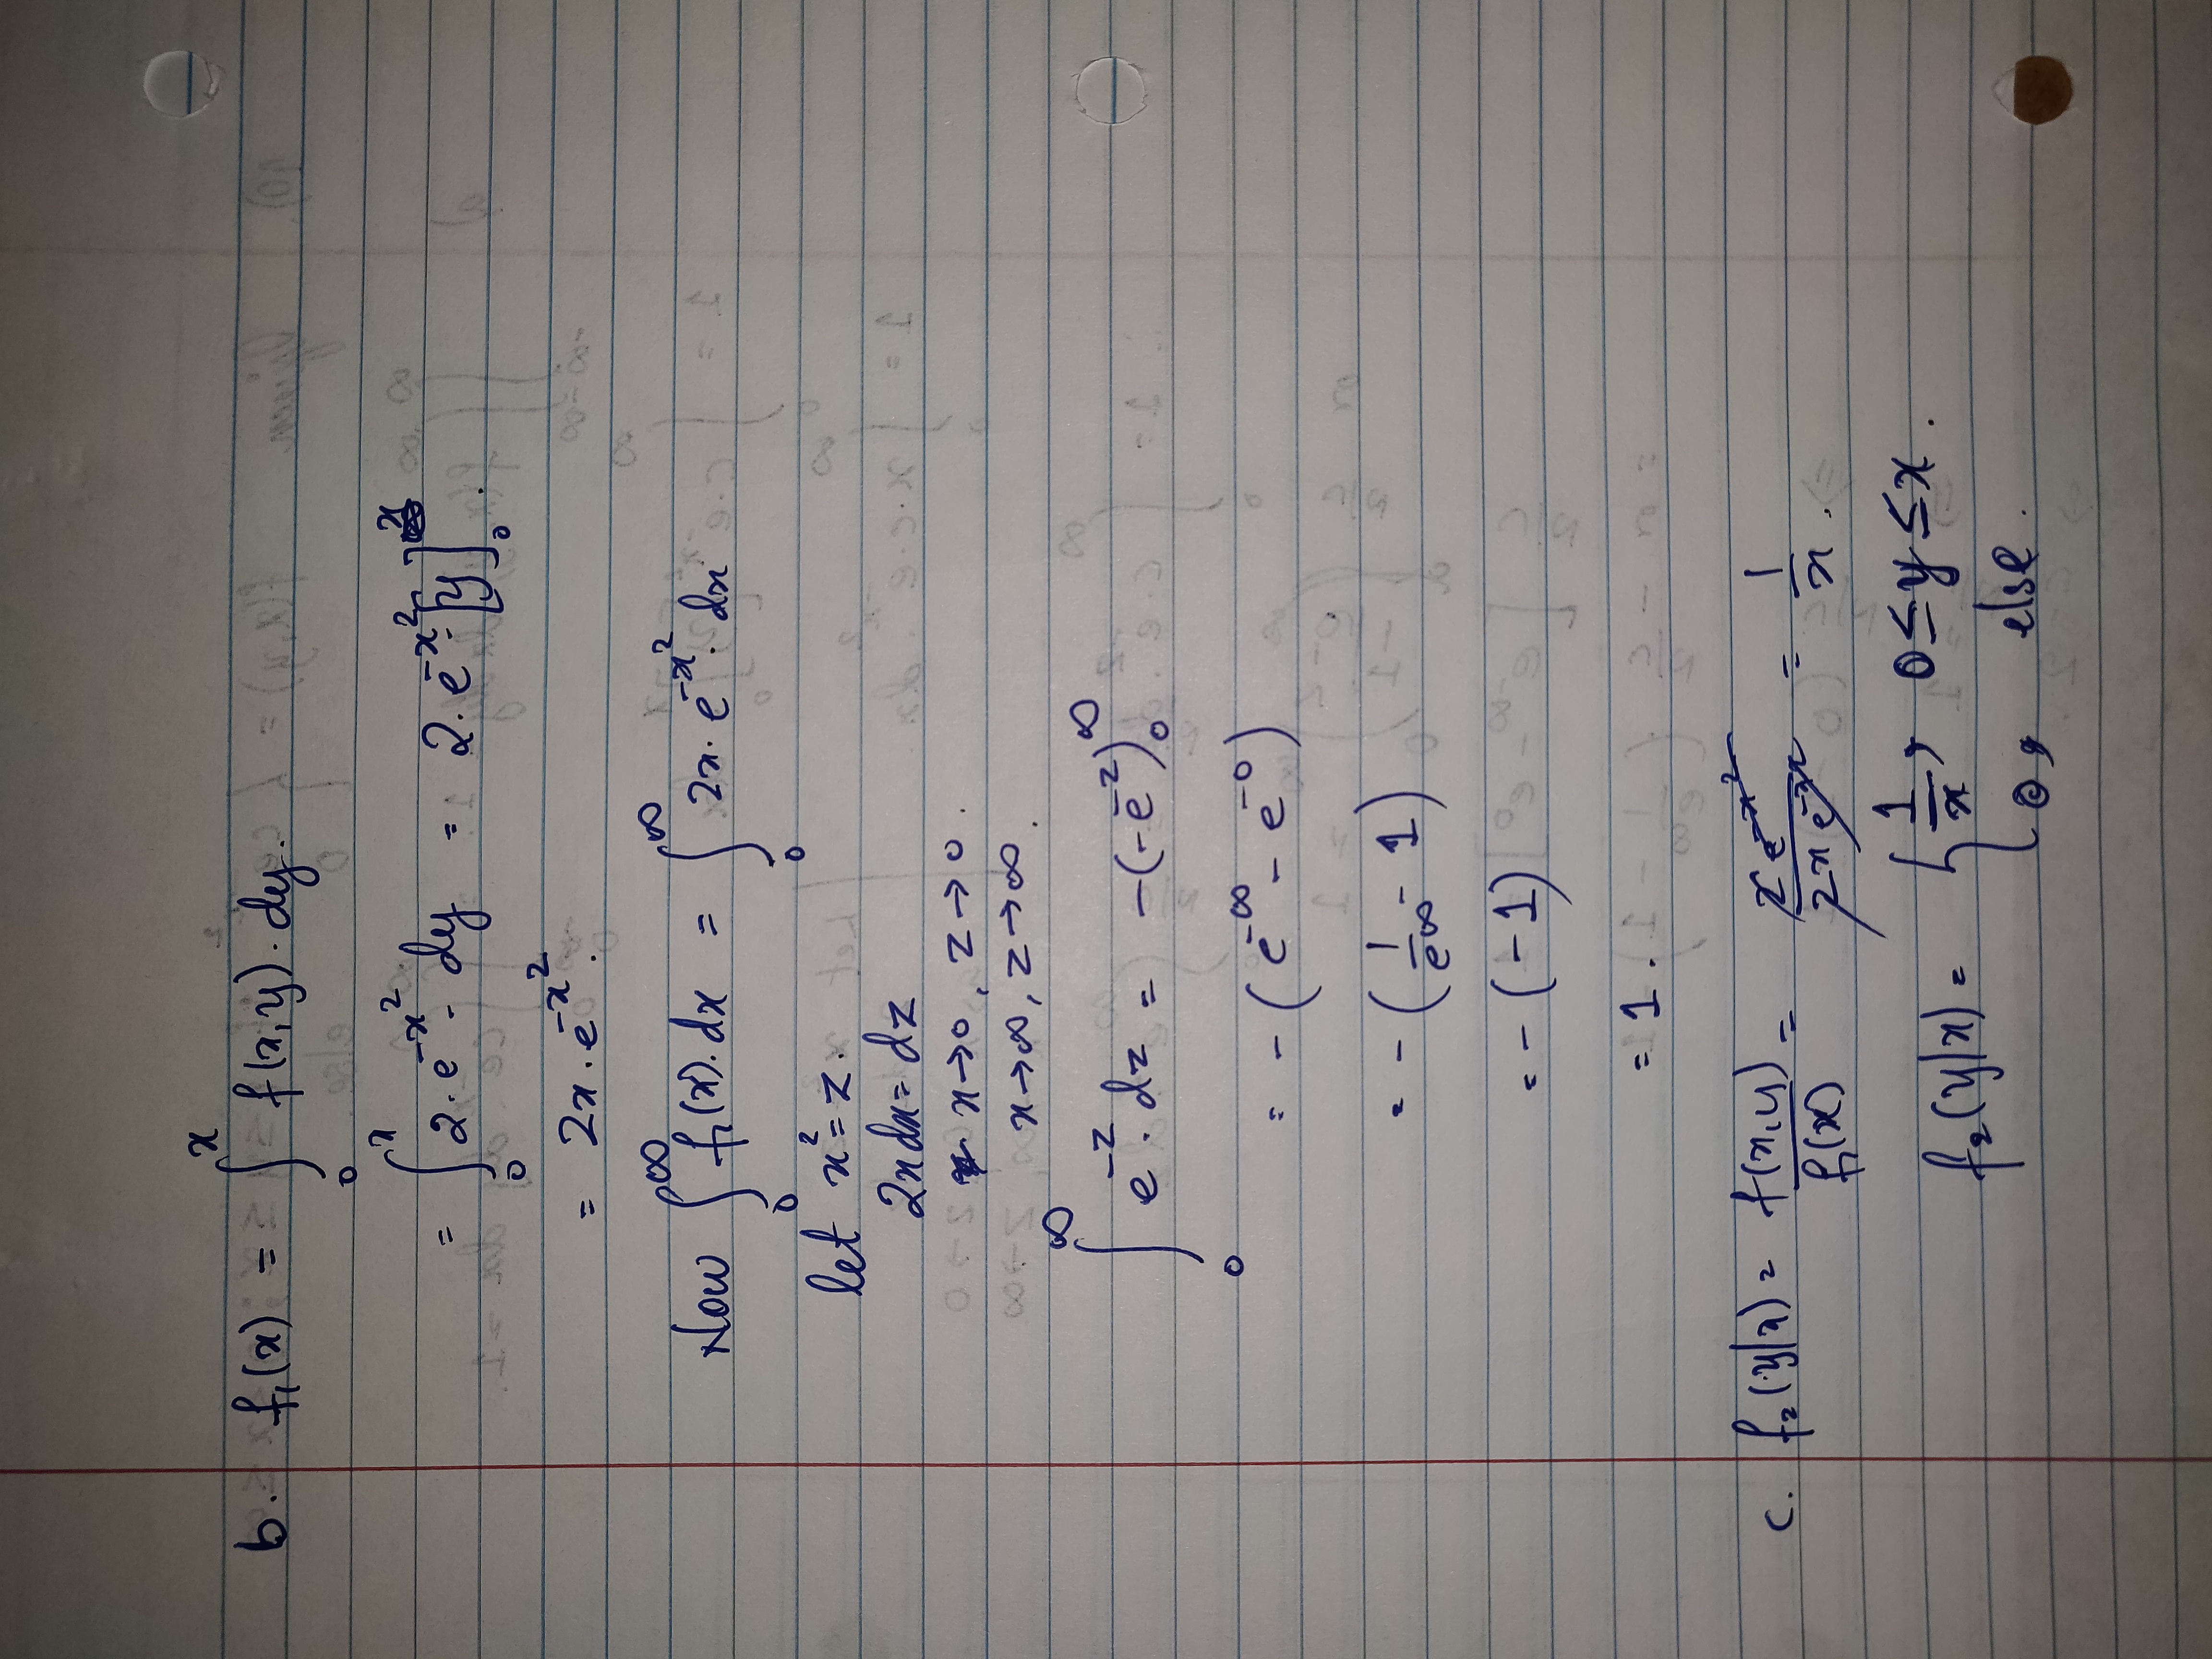 b. f₁(x) = ∫₀ˣ f(x,y). dy.
= ∫₀ˣ 2. e^{-x²}. dy = 2. e^{-x²}. [y]₀ˣ.
= 2x. e^{-x²}.
Now ∫₀^∞ f₁(x). dx = ∫₀^∞ 2x. e^{-x²}. dx
let x² = z.
2x dx = dz
x→0, z→0.
x→∞, z→∞.
∫₀^∞ e^{-z}. dz = -(-e^{-z})₀^∞
= -(e^{-∞} - e^{-0})
= -(1/e^∞ - 1)
= -(-1)
= 1.
c. f₂(y|x) = f(x,y)/f₁(x) = 2e^{-x²}/2x e^{-x²} = 1/x.
f₂(y|x) = { 1/x, 0 ≤ y ≤ x.
0, else.